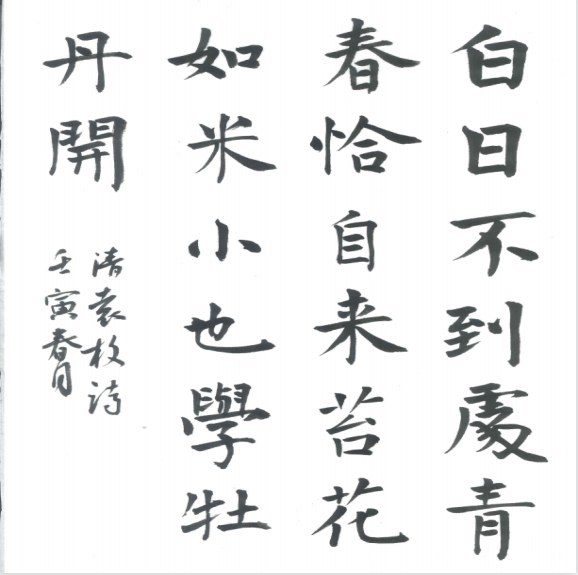 白日不到處青
春恰自来苔花
如米小也學牡
丹開
清袁枚詩
壬寅春月